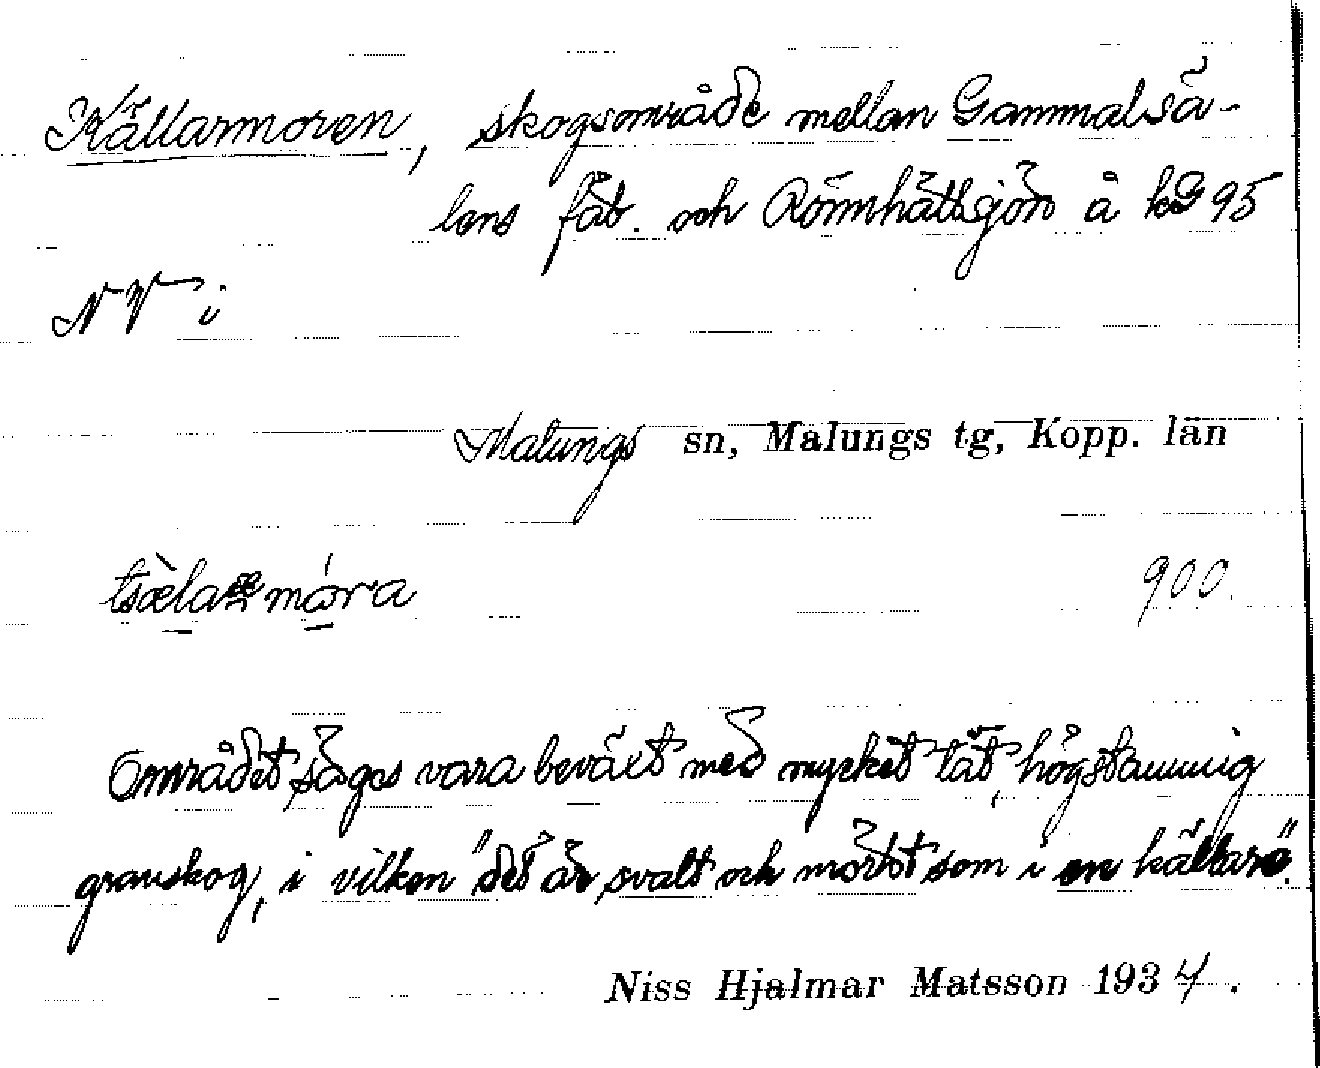 Källarmoren, skogsområde mellan Gammalsä-
lens fäb. och Rönnhättsjön å kG 95
NV i
Malungs sn, Malungs tg, Kopp. län
900
Området säges vara beväxt med mycket tät, högstammig
granskog, i vilken "det är svalt och mörkt som i en källare".
Niss Hjalmar Matsson 1934.